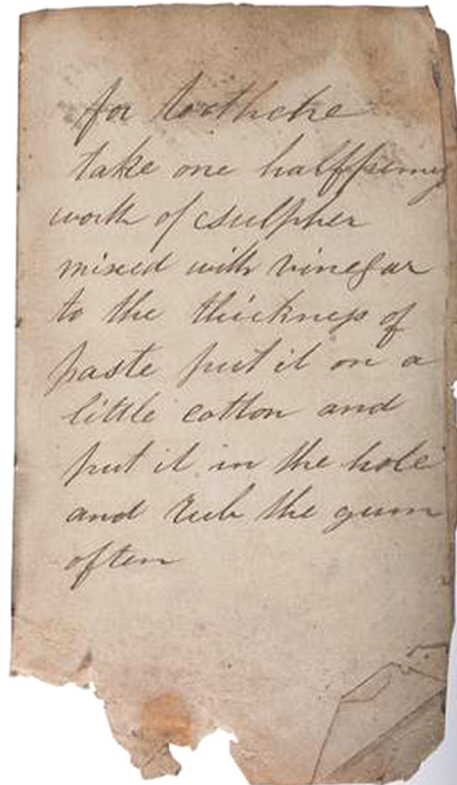 for toothche
take one halffpenny
worth of csulpher
mixed with vinegar
to the thickness of
paste put it on a
little cotton and
put it in the hole
and rub the gum
often